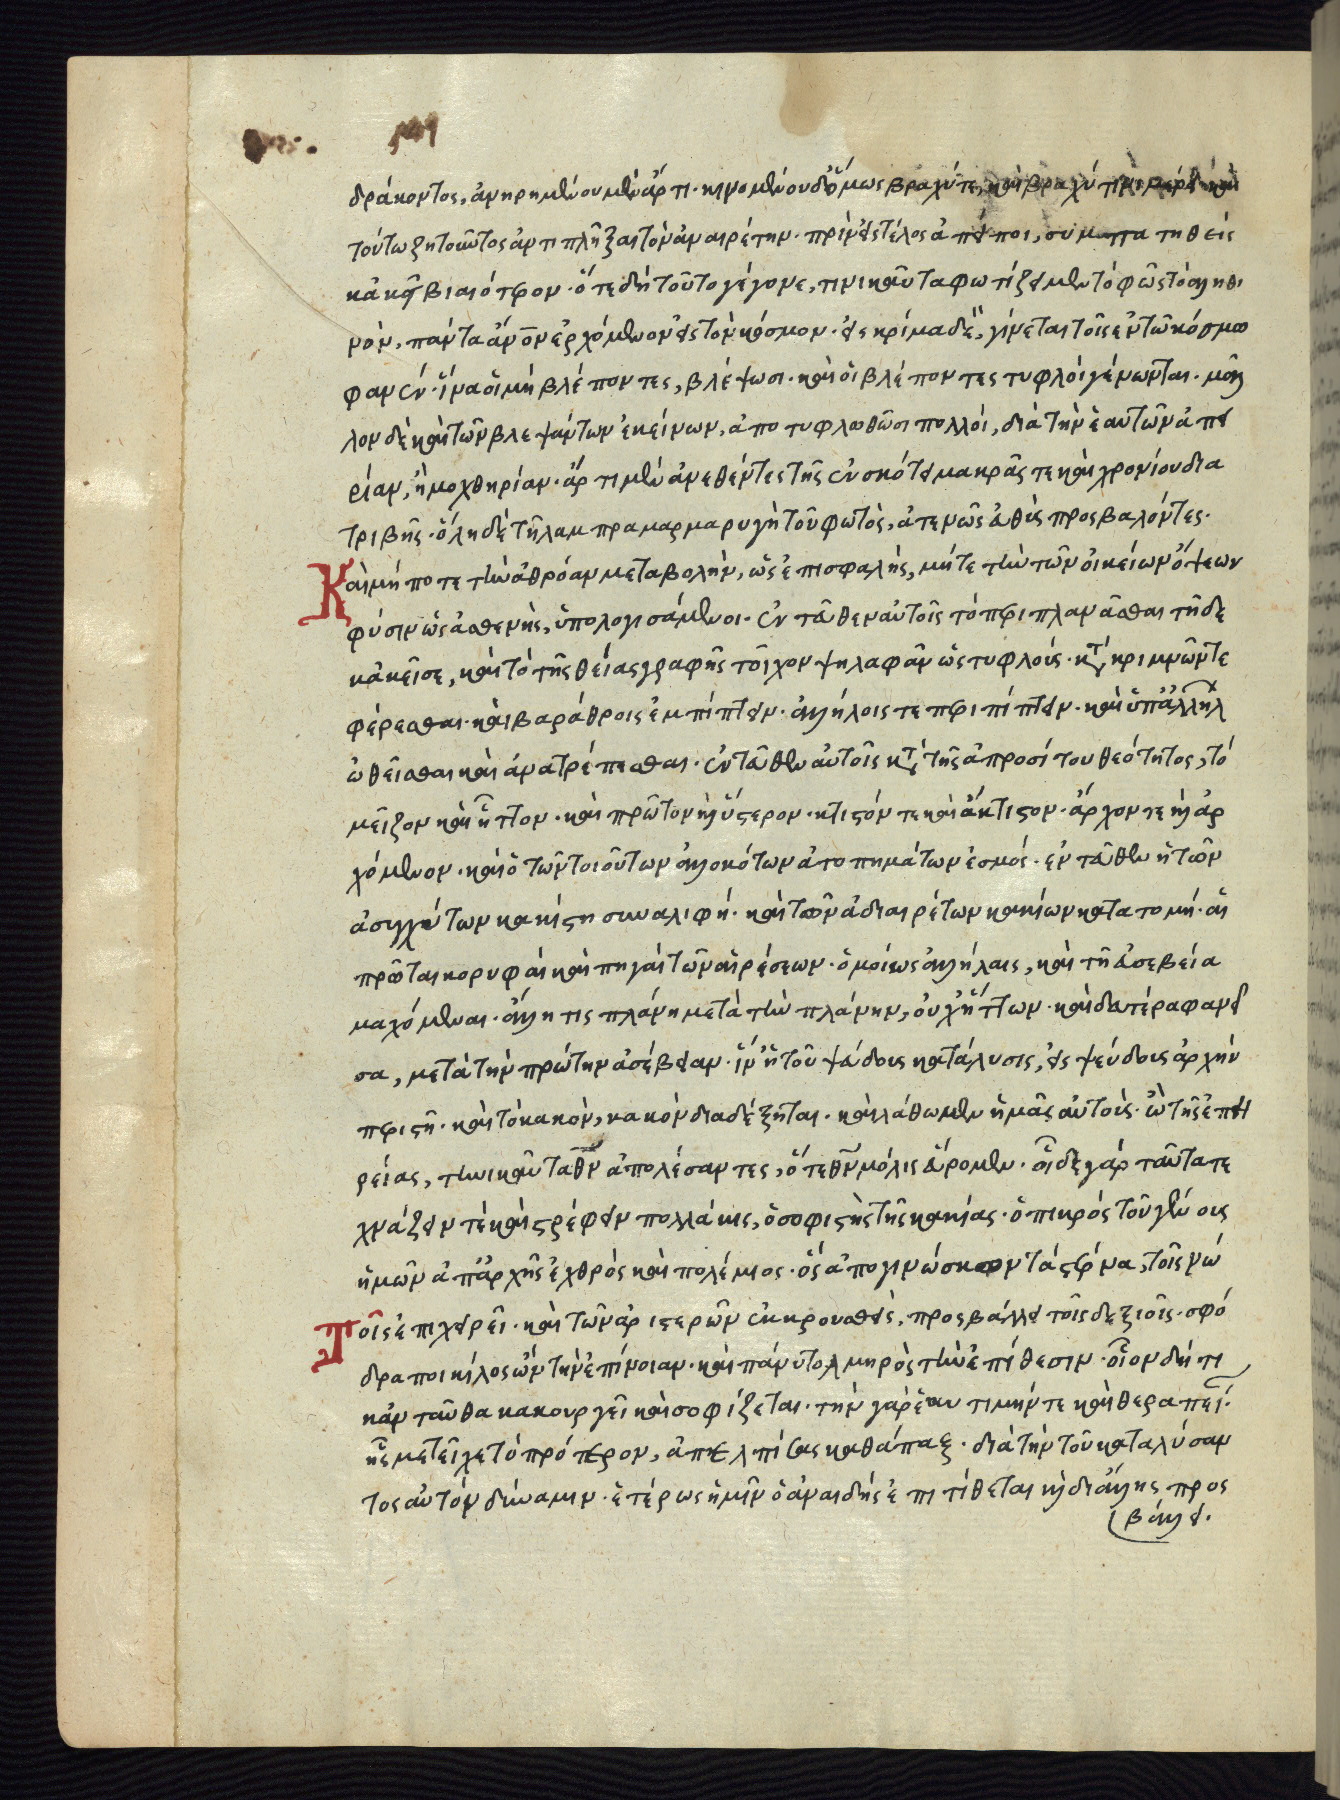 δράκοντος, ἀνηρημένου μὲν ἄρτι· κινουμένου δ' ὅμως βραχύ τε, καὶ βραχύ τινι μέρει καὶ
τούτω ζητοῦντος ἀντιπλῆξαι τὸν ἀναιρέτην· πρὶν εἰς τέλος ἀπείποι, συμπατηθεὶς
κἀκεῖ βιαιότερον· ὅτε δὴ τοῦτο γέγονε, τηνικαῦτα φωτίζει μὲν τὸ φῶς τὸ ἀληθι
νὸν, πάντα ἄνον ἐρχόμενον εἰς τὸν κόσμον· εἰς κρίμα δὲ, γίνεται τοῖς ἐν τῶ κόσμω
φανέν· ἵνα οἱ μὴ βλέποντες, βλέψωσι· καὶ οἱ βλέποντες τυφλοὶ γένωνται· μᾶλ
λον δὲ καὶ τῶν βλεψάντων ἐκείνων, ἀποτυφλωθῶσι πολλοὶ, διὰ τὴν ἑαυτῶν ἀπει
ρίαν, ἢ μοχθηρίαν· ἄρτι μὲν ἀνεθέντες τῆς ἐν σκότει μακρᾶς τε καὶ χρονίου δια
τριβῆς· ὅλη δὲ τῆ λαμπρα μαρμαρυγῆ τοῦ φωτὸς, ἀτενῶς εὐθὺς προσβαλόντες·
Καὶ μήποτε τὴν ἀθρόαν μεταβολὴν, ὡς ἐπισφαλὴς, μήτε τὴν τῶν οἰκείων ὄψεων
φύσιν ὡς ἀσθενὴς, ὑπολογισάμενοι· ἐντεῦθεν αὐτοῖς τὸ περιπλανᾶσθαι τῆδε
κἀκεῖσε, καὶ τὸ τῆς θείας γραφῆς τοῖχον ψηλαφᾶν ὡς τυφλοὺς· κτ κριμνῶν τε
φέρεσθαι· καὶ βαράθροις ἐμπίπτειν· ἀλλήλοις τε περιπίπτειν· καὶ ὑπ' ἀλλήλ
ὠθεῖσθαι καὶ ἀνατρέπεσθαι· ἐντεῦθεν αὐτοῖς κτ τῆς ἀπροσίτου θεότητος, τὸ
μεῖζον καὶ ἧττον· καὶ πρῶτον καὶ ὕστερον· κτιστόν τε καὶ ἄκτιστον· ἄρχον τε καὶ ἀρ
χόμενον· καὶ ὁ τῶν τοιούτων ἀλλοκότων ἀτοπημάτων ἑσμός· ἐντεῦθεν ἡ τῶν
ἀσυγχύτων κακίστη συναλιφή· καὶ τῶν ἀδιαιρέτων κακίων κατατομή· αἱ
πρῶται κορυφαὶ καὶ πηγαὶ τῶν αἱρέσεων· ὁμοίως ἀλλήλαις, καὶ τῆ εὐσεβεία
μαχόμεναι· ἄλλη τις πλάνη μετὰ τὴν πλάνην, οὐχ ἥττων· καὶ δευτέρα φανεῖ
σα, μετὰ τὴν πρώτην ἀσέβειαν· ἵν' ἡ τοῦ ψεύδους κατάλυσις, εἰς ψεύδους ἀρχὴν
περιστῆ· καὶ τὸ κακὸν, κακὸν διαδέξηται· καὶ λάθωμεν ἡμᾶς αὐτοὺς· ὢ τῆς ἐπη
ρείας, τηνικαῦτα θν ἀπολέσαντες, ὅτε θν μόλις εὕρομεν· οἶδε γὰρ ταῦτα τε
χνάζειν τὲ καὶ στρέφειν πολλάκις, ὁ σοφιστὴς τῆς κακίας· ὁ πικρὸς τοῦ γένους
ἡμῶν ἀπ' ἀρχῆς ἐχθρὸς καὶ πολέμιος· ὃς ἀπογινώσκων τὰ στέρνα, τοῖς νώ
Τοῖς ἐπιχειρεῖ· καὶ τῶν ἀριστερῶν ἐκκρουσθεὶς, προσβάλλει τοῖς δεξιοῖς· σφό
δρα ποικίλος ὢν τὴν ἐπίνοιαν· καὶ πάνυ τολμηρὸς τὴν ἐπίθεσιν· οἷον δή τι
κἀνταῦθα κακουργεῖ καὶ σοφίζεται· τὴν γὰρ ἑαυ τιμήν τε καὶ θεραπεί·
ἧς μετεῖχε τὸ πρότερον, ἀπελπίσας καθάπαξ· διὰ τὴν τοῦ καταλύσαν
τος αὐτὸν δύναμιν· ἑτέρως ἡμῖν ὁ ἀναιδὴς ἐπιτίθεται καὶ δι' ἄλλης προς
βάλλει·